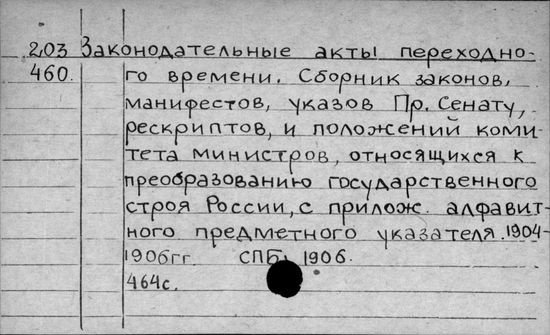 203 Законодательные акты переходно-
460. го времени. Сборник законов,
манифестов, указов Пр. Сенату,
рескриптов, и положений коми-
тета министров, относящихся к
преобразованию государственного
строя России, с прилож. алфавит-
ного предметного указателя. 1904-
1906гг. СПБ, 1906.
464с.